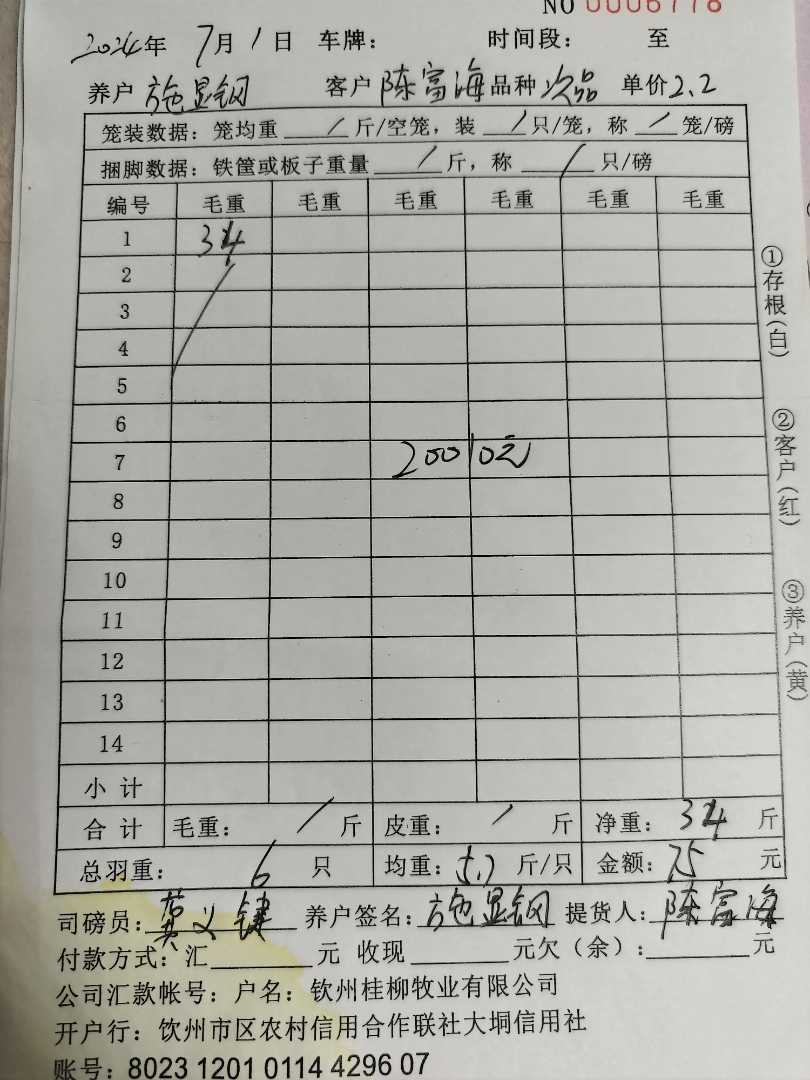 NO 0006778
2024年 7月1日 车牌: 时间段: 至
养户 施显钢 客户 陈富海 品种 次品 单价2.2
笼装数据: 笼均重 / 斤/空笼, 装 / 只/笼, 称 / 笼/磅
捆脚数据: 铁筐或板子重量 / 斤, 称 / 只/磅
编号 毛重 毛重 毛重 毛重 毛重 毛重
1 34
2
3
4
5
6
7 20010元
8
9
10
11
12
13
14
小计
合计 毛重: / 斤 皮重: / 斤 净重: 34 斤
总羽重: 6 只 均重: 5.7 斤/只 金额: 75 元
司磅员: 莫义键 养户签名: 施显钢 提货人: 陈富海
付款方式: 汇 元 收现 元欠(余): 元
公司汇款帐号: 户名: 钦州桂柳牧业有限公司
开户行: 钦州市区农村信用合作联社大垌信用社
账号: 8023 1201 0114 4296 07
①存根(白)
②客户(红)
③养户(黄)